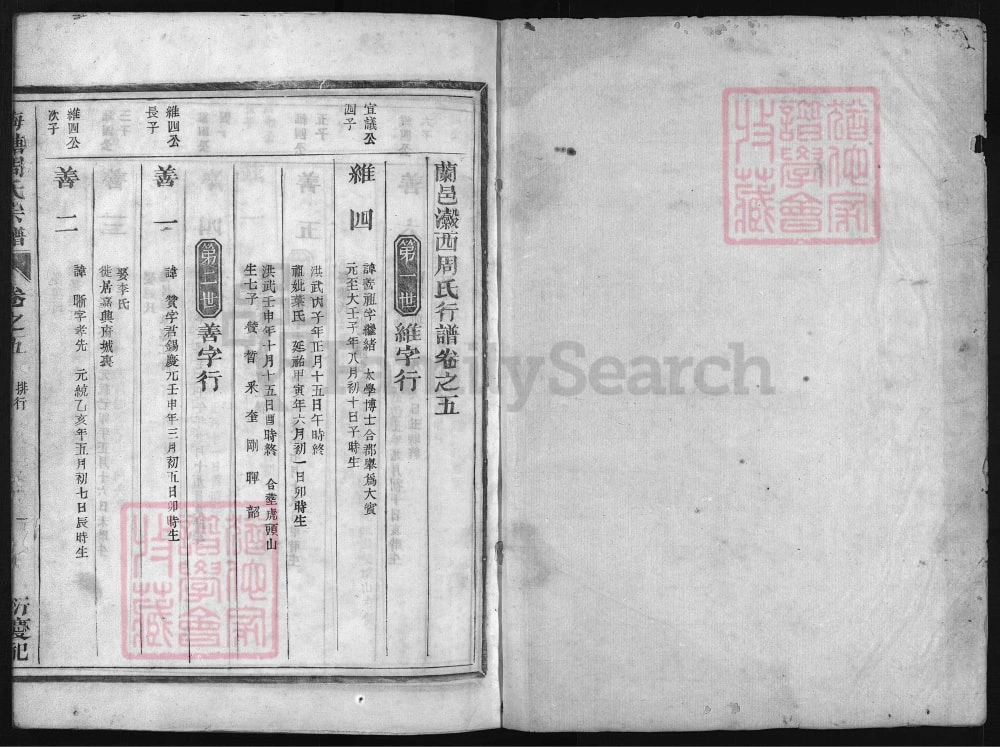 蘭邑瀫西周氏行譜卷之五
第一世 維字行
宜議公
四子
維四
諱 祖字繼緒 太學博士合郡舉爲大賓
元至大壬子年八月初十日子時生
洪武丙子年正月十五日午時終
祖妣葉氏 延祐甲寅年六月初一日卯時生
洪武壬申年十月十五日酉時終 合塟虎頭山
生七子 贊 晢 釆 奎 剛 暉 韶
第二世 善字行
維四公
長子
善一
諱贊字君錫慶元壬申年三月初五日卯時生
娶李氏
徙居嘉興府城裏
維四公
次子
善二
諱晢字孝先 元統乙亥年五月初七日辰時生
周氏宗譜
卷之五
排行
一
衍慶祀
譜學會
收藏
譜學會
收藏
FamilySearch